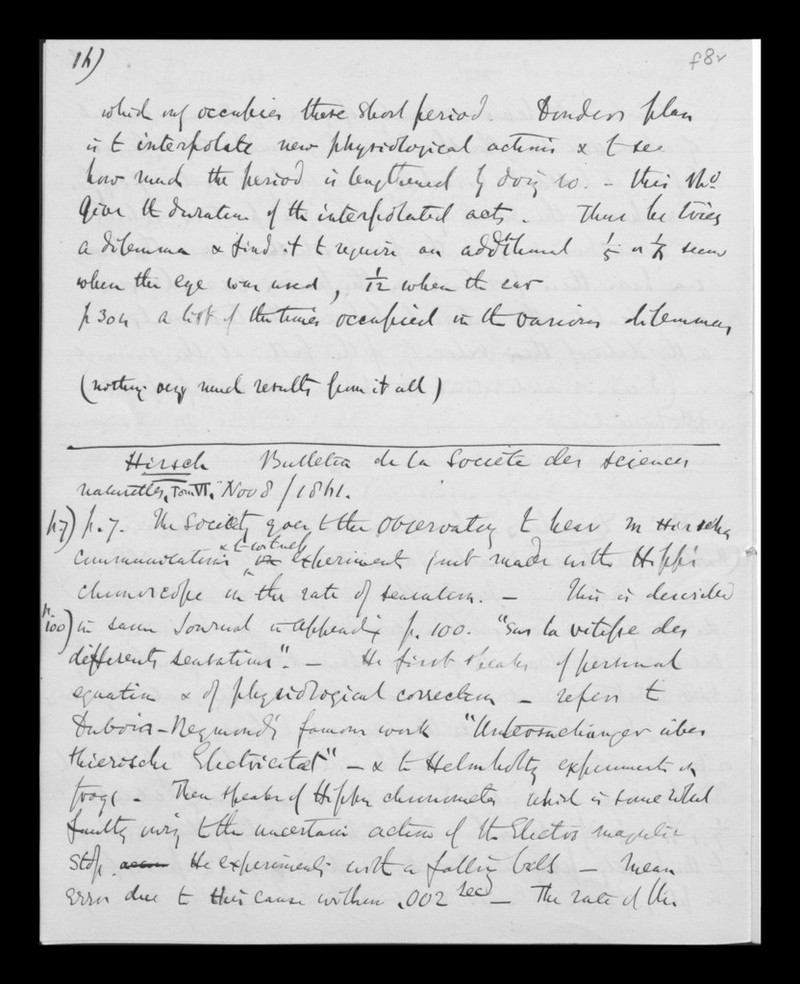 14)
f8v
which only occupies these short period. Donders plan
is to interpolate new physiological actions & to see
how much the period is lengthened by doing so. - this shd
give the duration of the interpolated acts. Thus he tries
a dilemma & finds it to require an additional 1/5 or 1/15 secs
when the eye was used, 1/12 when the ear
p 304 a list of the times occupied in the various dilemmas
(nothing very much results from it all)
Hirsch Bulletin de la Societe des sciences
naturelles, Tom VI, Nov 8/1861.
p7) p. 7. The Society goes to the Observatory to hear M Hirschs
communications & to witness experiments just made with Hipp's
chronoscope on the rate of sensation. - This is described
p. 100) in same Journal in appendix p. 100. "Sur la vitesse des
differents sensations". - He first speaks of personal
equation & of physiological correction - refers to
Dubois-Reymond's famous work "Untersuchungen über
thierische Electricitat" - & to Helmholtz experiments on
frogs - Then speaks of Hipps chronometer which is somewhat
faulty owing to the uncertain action of the Electro magnetic
stop. He experiments with a falling ball - mean
error due to this cause within .002 sec - The rate of the